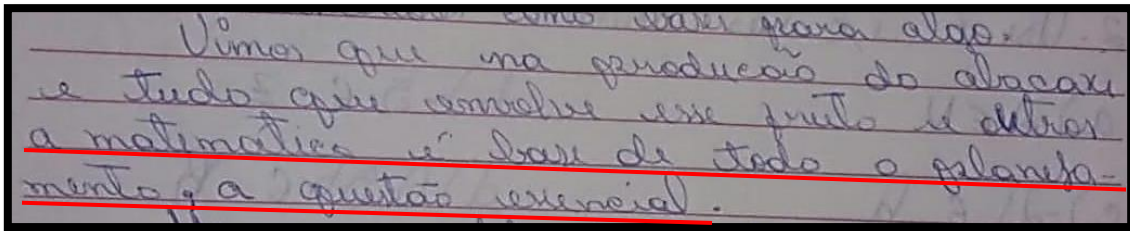 como base para algo.
Vimos que na producão do abacaxi
e tudo que envolve esse fruto e outros
a matematica é base de todo o planeja-
mento, a questão essencial.